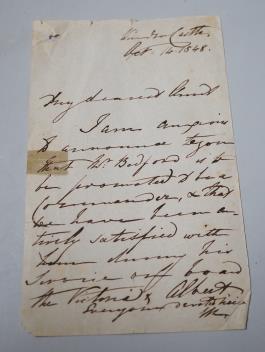 Windsor Castle,
Oct. 14. 1848.
My dearest Aunt
I am anxious
to announce to you
that Mr. Bedford is to
be promoted to be a
Commander, & that
we have been en
tirely satisfied with
him during his
service on board
the Victoria & Albert
Ever your